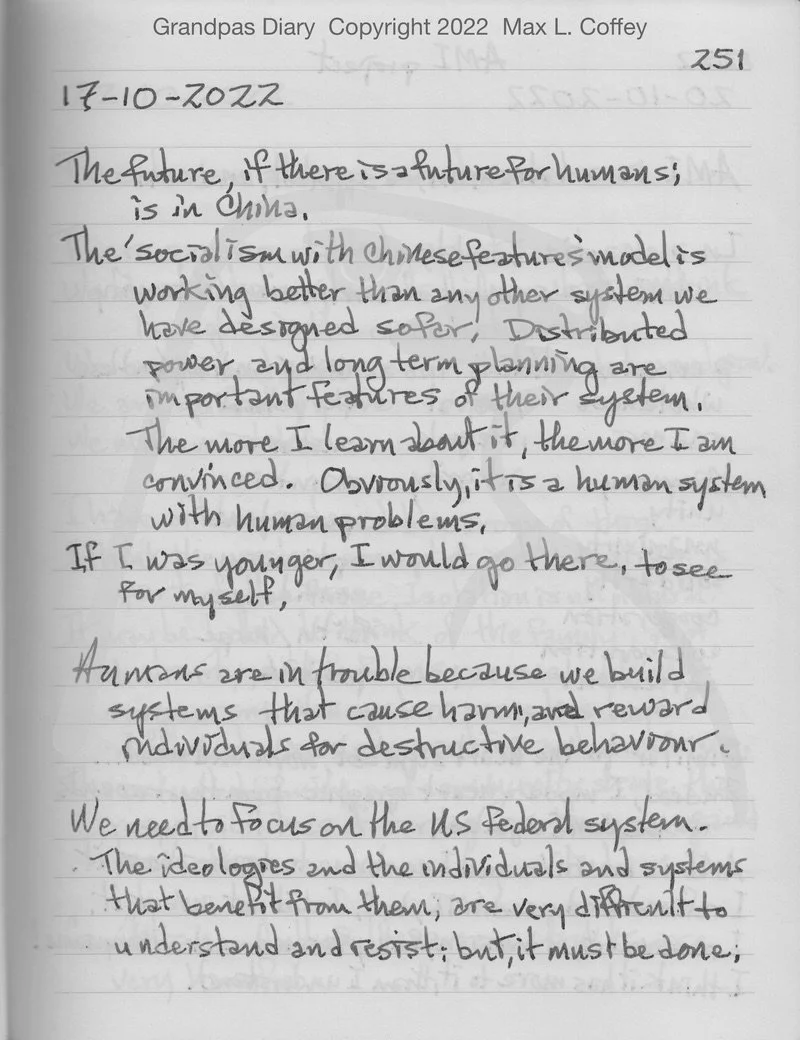 Grandpas Diary Copyright 2022 Max L. Coffey
251
17-10-2022
The future, if there is a future for humans;
is in China.
The 'socialism with Chinese features' model is
working better than any other system we
have designed so far. Distributed
power and long term planning are
important features of their system.
The more I learn about it, the more I am
convinced. Obviously, it is a human system
with human problems.
If I was younger, I would go there, to see
for myself.
Humans are in trouble because we build
systems that cause harm, and reward
individuals for destructive behaviour.
We need to focus on the US federal system.
The ideologies and the individuals and systems
that benefit from them, are very difficult to
understand and resist; but, it must be done;